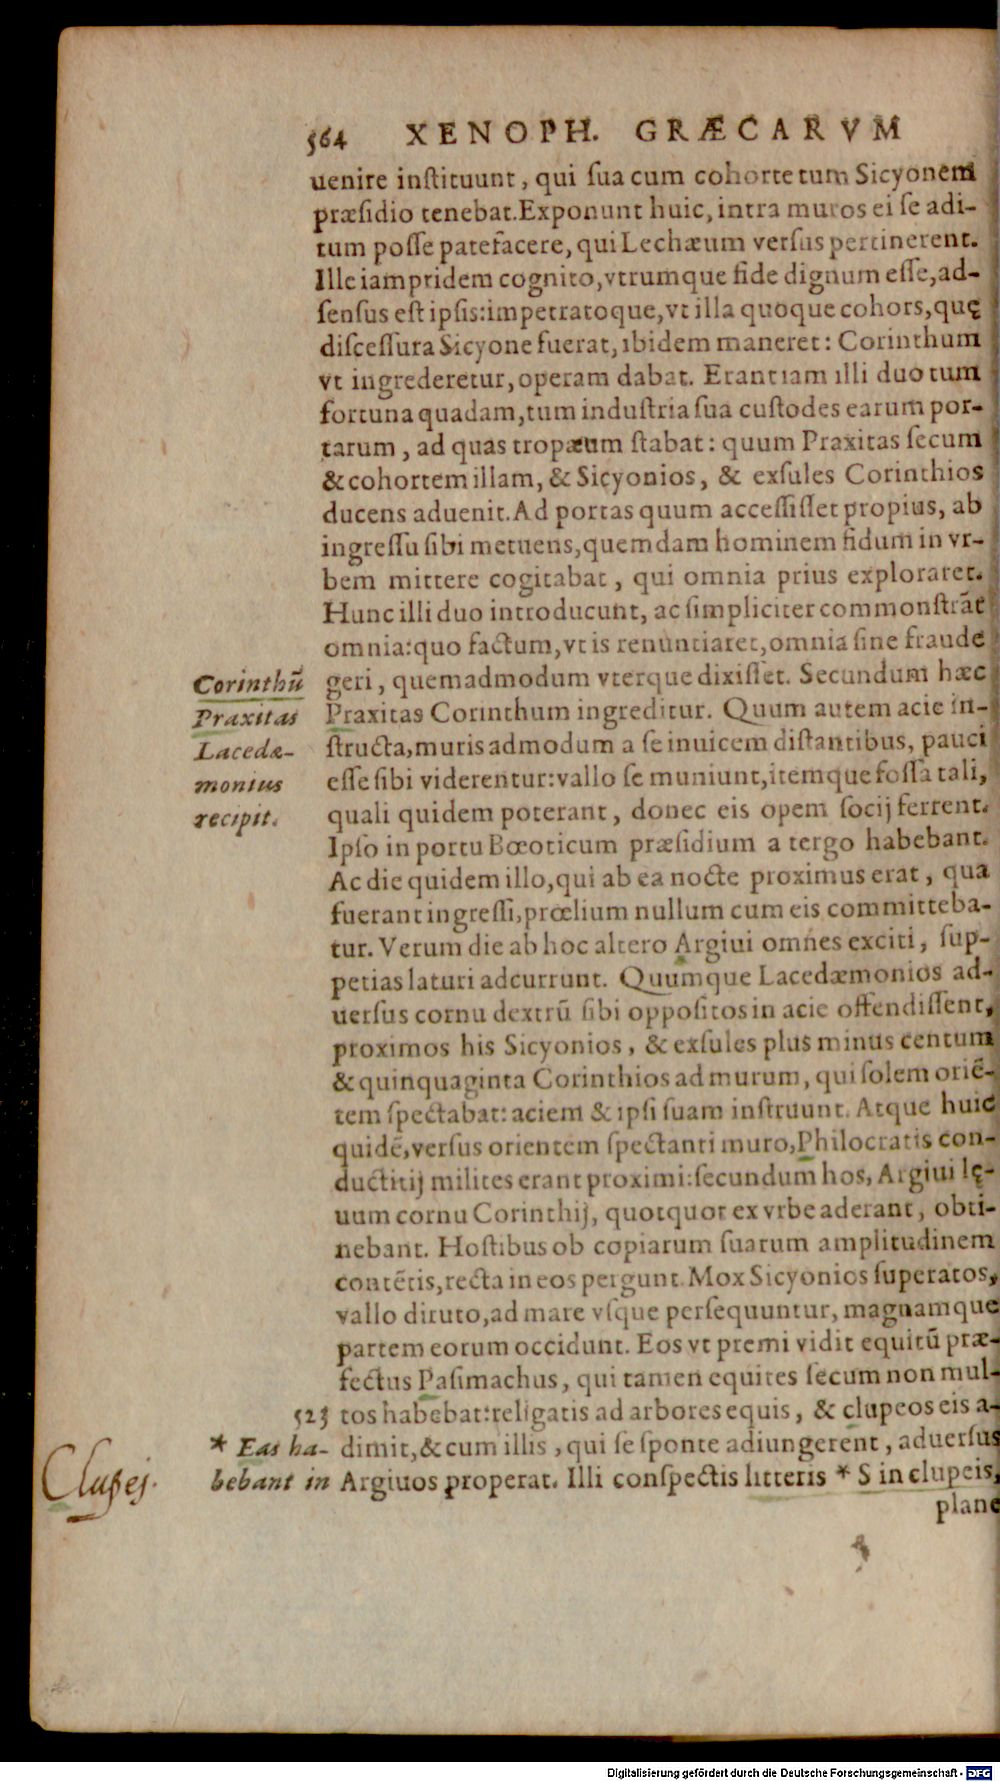 564 XENOPH. GRÆCARVM
uenire instituunt, qui sua cum cohorte tum Sicyonem
præsidio tenebat. Exponunt huic, intra muros ei se adi-
tum posse patefacere, qui Lechæum versus pertinerent.
Ille iampridem cognito, vtrumque fide dignum esse, ad-
sensus est ipsis: impetratoque, vt illa quoque cohors, quę
discessura Sicyone fuerat, ibidem maneret: Corinthum
vt ingrederetur, operam dabat. Erant iam illi duo tum
fortuna quadam, tum industria sua custodes earum por-
tarum, ad quas tropæum stabat: quum Praxitas secum
& cohortem illam, & Sicyonios, & exsules Corinthios
ducens aduenit. Ad portas quum accessisset propius, ab
ingressu sibi metuens, quemdam hominem fidum in vr-
bem mittere cogitabat, qui omnia prius exploraret.
Hunc illi duo introducunt, ac simpliciter commonstrāt
omnia: quo factum, vt is renuntiaret, omnia sine fraude
geri, quemadmodum vterque dixisset. Secundum hæc
Praxitas Corinthum ingreditur. Quum autem acie in-
structa, muris admodum a se inuicem distantibus, pauci
esse sibi viderentur: vallo se muniunt, itemque fossa tali,
quali quidem poterant, donec eis opem socij ferrent.
Ipso in portu Bœoticum præsidium a tergo habebant.
Ac die quidem illo, qui ab ea nocte proximus erat, qua
fuerant ingressi, prœlium nullum cum eis committeba-
tur. Verum die ab hoc altero Argiui omnes exciti, sup-
petias laturi adcurrunt. Quumque Lacedæmonios ad-
uersus cornu dextrū sibi oppositos in acie offendissent,
proximos his Sicyonios, & exsules plus minus centum
& quinquaginta Corinthios ad murum, qui solem oriē-
tem spectabat: aciem & ipsi suam instruunt. Atque huic
quidē, versus orientem spectanti muro, Philocratis con-
ductitij milites erant proximi: secundum hos, Argiui lę-
uum cornu Corinthij, quotquot ex vrbe aderant, obti-
nebant. Hostibus ob copiarum suarum amplitudinem
contētis, recta in eos pergunt. Mox Sicyonios superatos,
vallo diruto, ad mare vsque persequuntur, magnamque
partem eorum occidunt. Eos vt premi vidit equitū præ-
fectus Pasimachus, qui tamen equites secum non mul-
tos habebat: religatis ad arbores equis, & clupeos eis a-
dimit, & cum illis, qui se sponte adiungerent, aduersus
Argiuos properat. Illi conspectis litteris * S in clupeis,
plane
Corinthū
Praxitas
Lacedæ-
monius
recipit.
523
* Eas ha-
bebant in
Clupej.
Digitalisierung gefördert durch die Deutsche Forschungsgemeinschaft - DFG